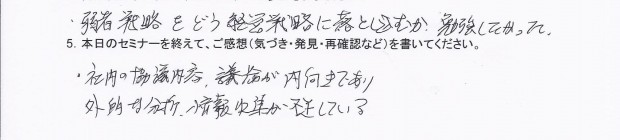 ・弱者戦略をどう経営戦略に落とし込むか勉強してみたい。
5. 本日のセミナーを終えて、ご感想（気づき・発見・再確認など）を書いてください。
・社内の協議内容、議論が内向きであり
外的な分析、情報収集が不足している